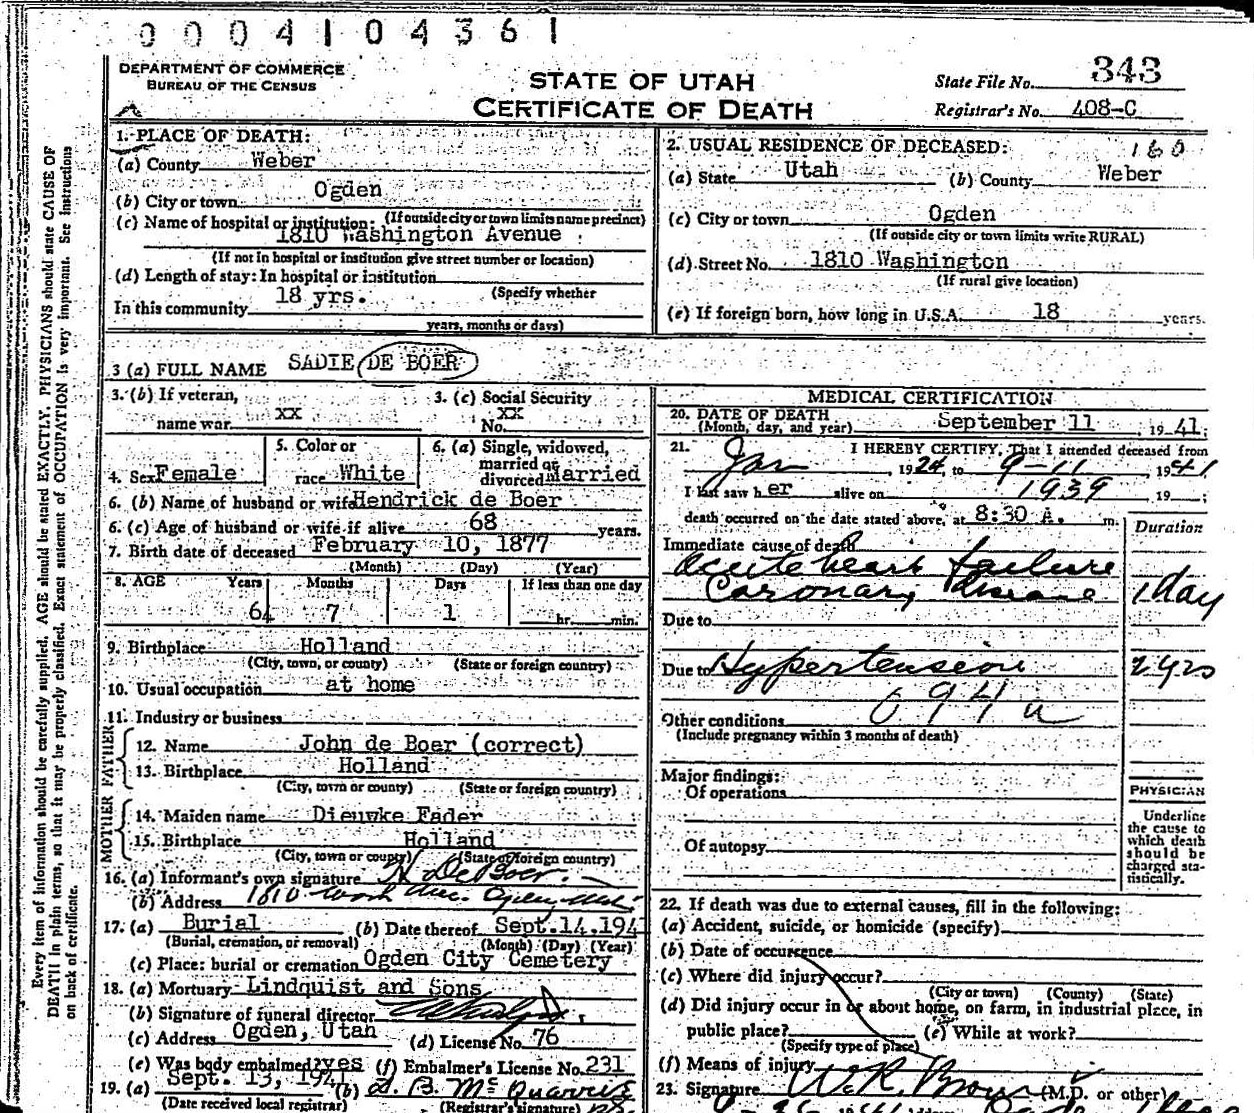 0004104361
DEPARTMENT OF COMMERCE
BUREAU OF THE CENSUS
STATE OF UTAH
CERTIFICATE OF DEATH
State File No. 343
Registrar's No. 408-C
1. PLACE OF DEATH:
(a) County Weber
(b) City or town Ogden
(If outside city or town limits name precinct)
(c) Name of hospital or institution:
1810 Washington Avenue
(If not in hospital or institution give street number or location)
(d) Length of stay: In hospital or institution
(Specify whether
In this community 18 yrs.
years, months or days)
2. USUAL RESIDENCE OF DECEASED: 160
(a) State Utah (b) County Weber
(c) City or town Ogden
(If outside city or town limits write RURAL)
(d) Street No. 1810 Washington
(If rural give location)
(e) If foreign born, how long in U.S.A. 18 years.
3 (a) FULL NAME SADIE DE BOER
3. (b) If veteran,
name war xx
3. (c) Social Security
No. XX
4. Sex Female
5. Color or
race White
6. (a) Single, widowed,
married or
divorced Married
6. (b) Name of husband or wife Hendrick de Boer
6. (c) Age of husband or wife if alive 68 years.
7. Birth date of deceased February 10, 1877
(Month) (Day) (Year)
8. AGE Years Months Days If less than one day
64 7 1 hr. min.
9. Birthplace Holland
(City, town, or county) (State or foreign country)
10. Usual occupation at home
11. Industry or business
FATHER
12. Name John de Boer (correct)
13. Birthplace Holland
(City, town or county) (State or foreign country)
MOTHER
14. Maiden name Dieuwke Fader
15. Birthplace Holland
(City, town or county) (State or foreign country)
16. (a) Informant's own signature H DeBoer.
(b) Address 1810 Wash Ave. Ogden, Utah
17. (a) Burial (b) Date thereof Sept.14.194
(Burial, cremation, or removal) (Month) (Day) (Year)
(c) Place: burial or cremation Ogden City Cemetery
18. (a) Mortuary Lindquist and Sons
(b) Signature of funeral director
(c) Address Ogden, Utah (d) License No. 76
(e) Was body embalmed? yes (f) Embalmer's License No. 231
19. (a) Sept. 13, 194 (b) D. B. McQuarrie
(Date received local registrar) (Registrar's signature)
MEDICAL CERTIFICATION
20. DATE OF DEATH
(Month, day, and year) September 11, 1941;
21. I HEREBY CERTIFY, That I attended deceased from
Jan, 1924, to 9-11 1941
I last saw her alive on 1939 19 ;
death occurred on the date stated above, at 8:30 A. m.
Duration
Immediate cause of death
Acute heart failure
Coronary disease 1 day
Due to
Due to Hypertension 2 yrs
094a
Other conditions
(Include pregnancy within 3 months of death)
Major findings:
Of operations
Of autopsy
PHYSICIAN
Underline
the cause to
which death
should be
charged sta-
tistically.
22. If death was due to external causes, fill in the following:
(a) Accident, suicide, or homicide (specify)
(b) Date of occurence
(c) Where did injury occur?
(City or town) (County) (State)
(d) Did injury occur in or about home, on farm, in industrial place, in
public place? (e) While at work?
(Specify type of place)
(f) Means of injury
23. Signature W.R. Brown (M.D. or other)
Every item of information should be carefully supplied. AGE should be stated EXACTLY. PHYSICIANS should state CAUSE OF
DEATH in plain terms, so that it may be properly classified. Exact statement of OCCUPATION is very important. See instructions
on back of certificate.